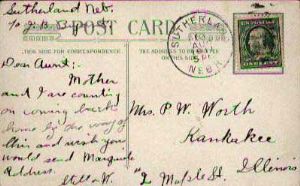 Sutherland Neb.
POST CARD
THIS SIDE FOR CORRESPONDENCE.
THE ADDRESS TO BE
SUTHERLAND
NEBR.
Dear Aunt:-
Mother
and I are counting
on coming back
home by the way of
this and wish you
would send Marguerite
address.
Mrs. P. W. Worth
Kankakee
Illinois
"2 Maple St.